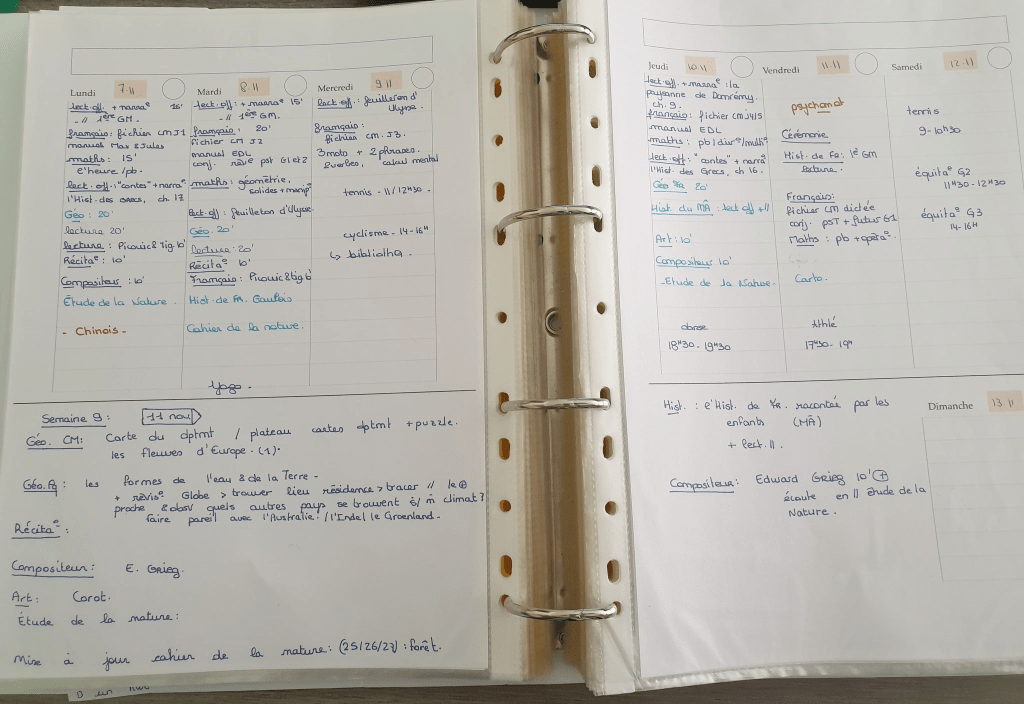 Lundi 7.11
lect. off. + narra° 15'
- // 1ère GM.
français: fichier CM J1
manuel Max & Jules
maths: 15'
l'heure / pb.
lect. off.: "contes" + narra°
l'Hist. des Grecs, ch 17
Géo: 20'
lecture 20'
lecture: Picouic & Tig. 10'
Récita°: 10'
Compositeur: 10'
Étude de la Nature.
- Chinois -
Mardi 8.11
lect. off: + narra° 15'
- // 1ère GM.
français: 20'
fichier CM J2
manuel EDL
conj. pst G1 et 2
maths: géométrie,
solides + manip°
lect. off: feuilleton d'Ulysse.
Géo. 20'
lecture: 20'
Récita° 10'
Français: Picouic & tig 6'
Hist. de FR. Gaulois
Cahier de la nature.
Yoga.
Mercredi 9.11
lect. off.: feuilleton d'
Ulysse.
français:
fichier CM. J3.
3 mots + 2 phrases.
2 verbes, calcul mental
tennis - 11/12H30.
cyclisme - 14-16H
↳ bibliothQ.
Semaine 9: 11 nov
Géo. CM: Carte du dptmt / plateau cartes dptmt + puzzle.
les fleuves d'Europe. (1).
Géo. Fq: les formes de l'eau & de la Terre -
+ révis° Globe > trouver lieu résidence > tracer // le ⊕
proche & obsv quels autres pays se trouvent s/ m̂ climat?
faire pareil avec l'Australie / l'Inde / le Groenland -
Récita°:
Compositeur: E. Grieg.
Art: Corot.
Étude de la nature:
Mise à jour cahier de la nature: (25/26/27): forêt.
Jeudi 10.11
lect. off. + narra°: la
paysanne de Domrémy.
ch. 9.
français: fichier CM J4/5
manuel EDL
maths: pb / dur° / multi°
lect. off: "contes" + narra°
l'Hist. des Grecs, ch 16.
Géo 20'
Hist. du MÂ: lect off + //
Art: 10'
Compositeur 10'
- Étude de la Nature.
danse
18H30 - 19H30
Vendredi 11.11
psychomot
Cérémonie
Hist. de Fr: 1e GM
lecture.
Français:
fichier CM dictée
conj. psT + futur G1
Maths: pb + opéra°.
Carto.
Athlé
17H30 - 19H
Samedi 12.11
tennis
9-10H30
équita° G2
11H30 - 12H30
équita° G3
14-16H
Hist.: l'Hist. de Fr. racontée par les
enfants (MÂ)
+ lect. //.
Compositeur: Edward Grieg 10' ⊕
écoute en // étude de la
Nature.
Dimanche 13.11